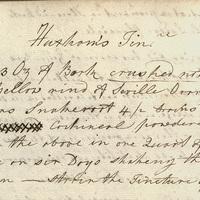 Huxham's Tin.re
3 Oz of Bark crushed not
yellow rind of Seville Oran
as Snakeroot 4/2 bruis
Cochineal powdere
the above in one Quart of
e or six Days shaking th
n — strain the Tincture